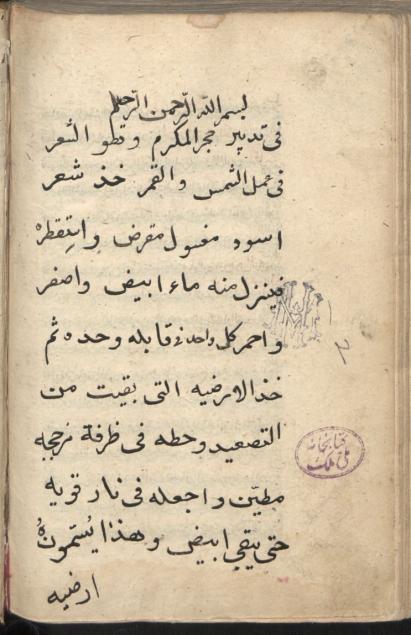 بسم الله الرحمن الرحيم
فى تدبير حجر المكرم وهو الشعر
فى عمل الشمس والقمر خذ شعر
اسود مغسول مقرض واتقطره
فينزل منه ماء ابيض واصفر
واحمر كل واحد فى قابله وحده ثم
خذ الارضيه التى بقيت من
التصعيد وحطه فى ظرفة زججه
مطيّن واجعله فى نار قويه
حتى يبقى ابيض وهذا يسمونهُ
ارضيه
كتابخانه
ملى ملك